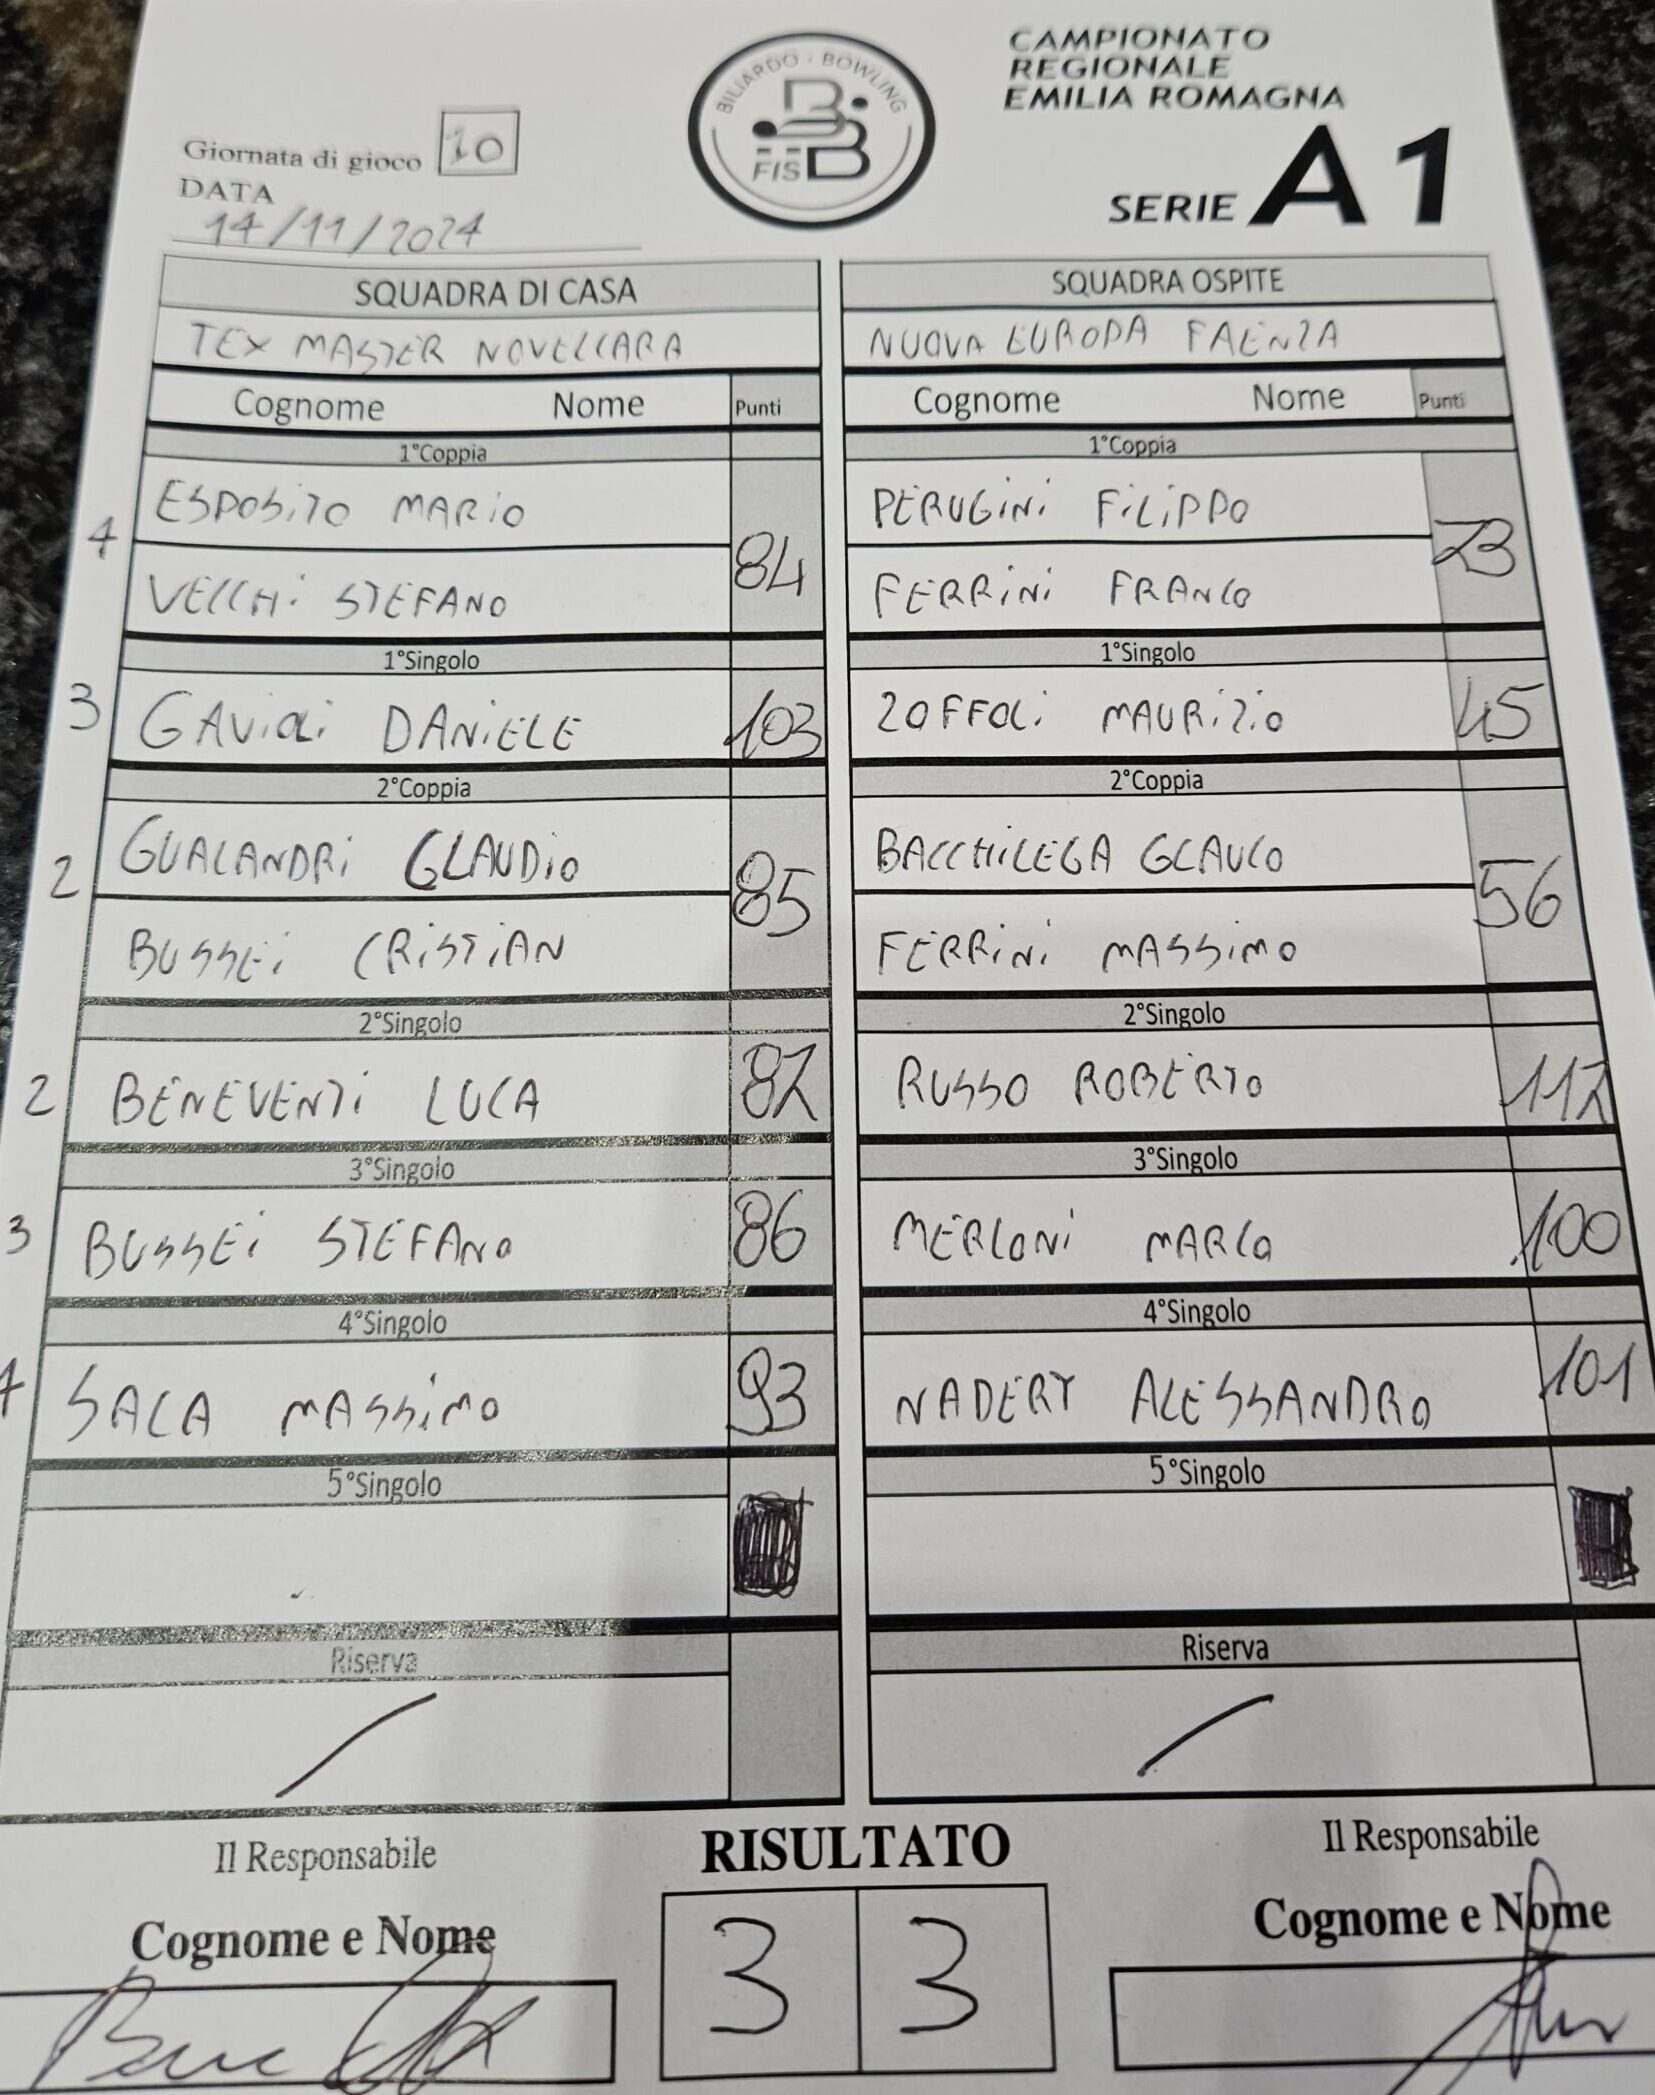 CAMPIONATO
REGIONALE
EMILIA ROMAGNA
SERIE A1
BILIARDO - BOWLING
FISBB
Giornata di gioco 10
DATA
14/11/2024
SQUADRA DI CASA
TEX MASTER NOVELLARA
Cognome Nome Punti
1°Coppia
4 ESPOSITO MARIO
VECCHI STEFANO 84
1°Singolo
3 GAVIOLI DANIELE 103
2°Coppia
2 GUALANDRI GLAUDIO
BUSSEI CRISTIAN 85
2°Singolo
2 BENEVENTI LUCA 82
3°Singolo
3 BUSSEI STEFANO 86
4°Singolo
SALA MASSIMO 93
5°Singolo
Riserva
SQUADRA OSPITE
NUOVA EUROPA FAENZA
Cognome Nome Punti
1°Coppia
PERUGINI FILIPPO
FERRINI FRANCO 73
1°Singolo
ZOFFOLI MAURIZIO 45
2°Coppia
BACCHILEGA GLAUCO
FERRINI MASSIMO 56
2°Singolo
RUSSO ROBERTO 112
3°Singolo
MERLONI MARCO 100
4°Singolo
NADERY ALESSANDRO 101
5°Singolo
Riserva
Il Responsabile
Cognome e Nome
RISULTATO
3 3
Il Responsabile
Cognome e Nome